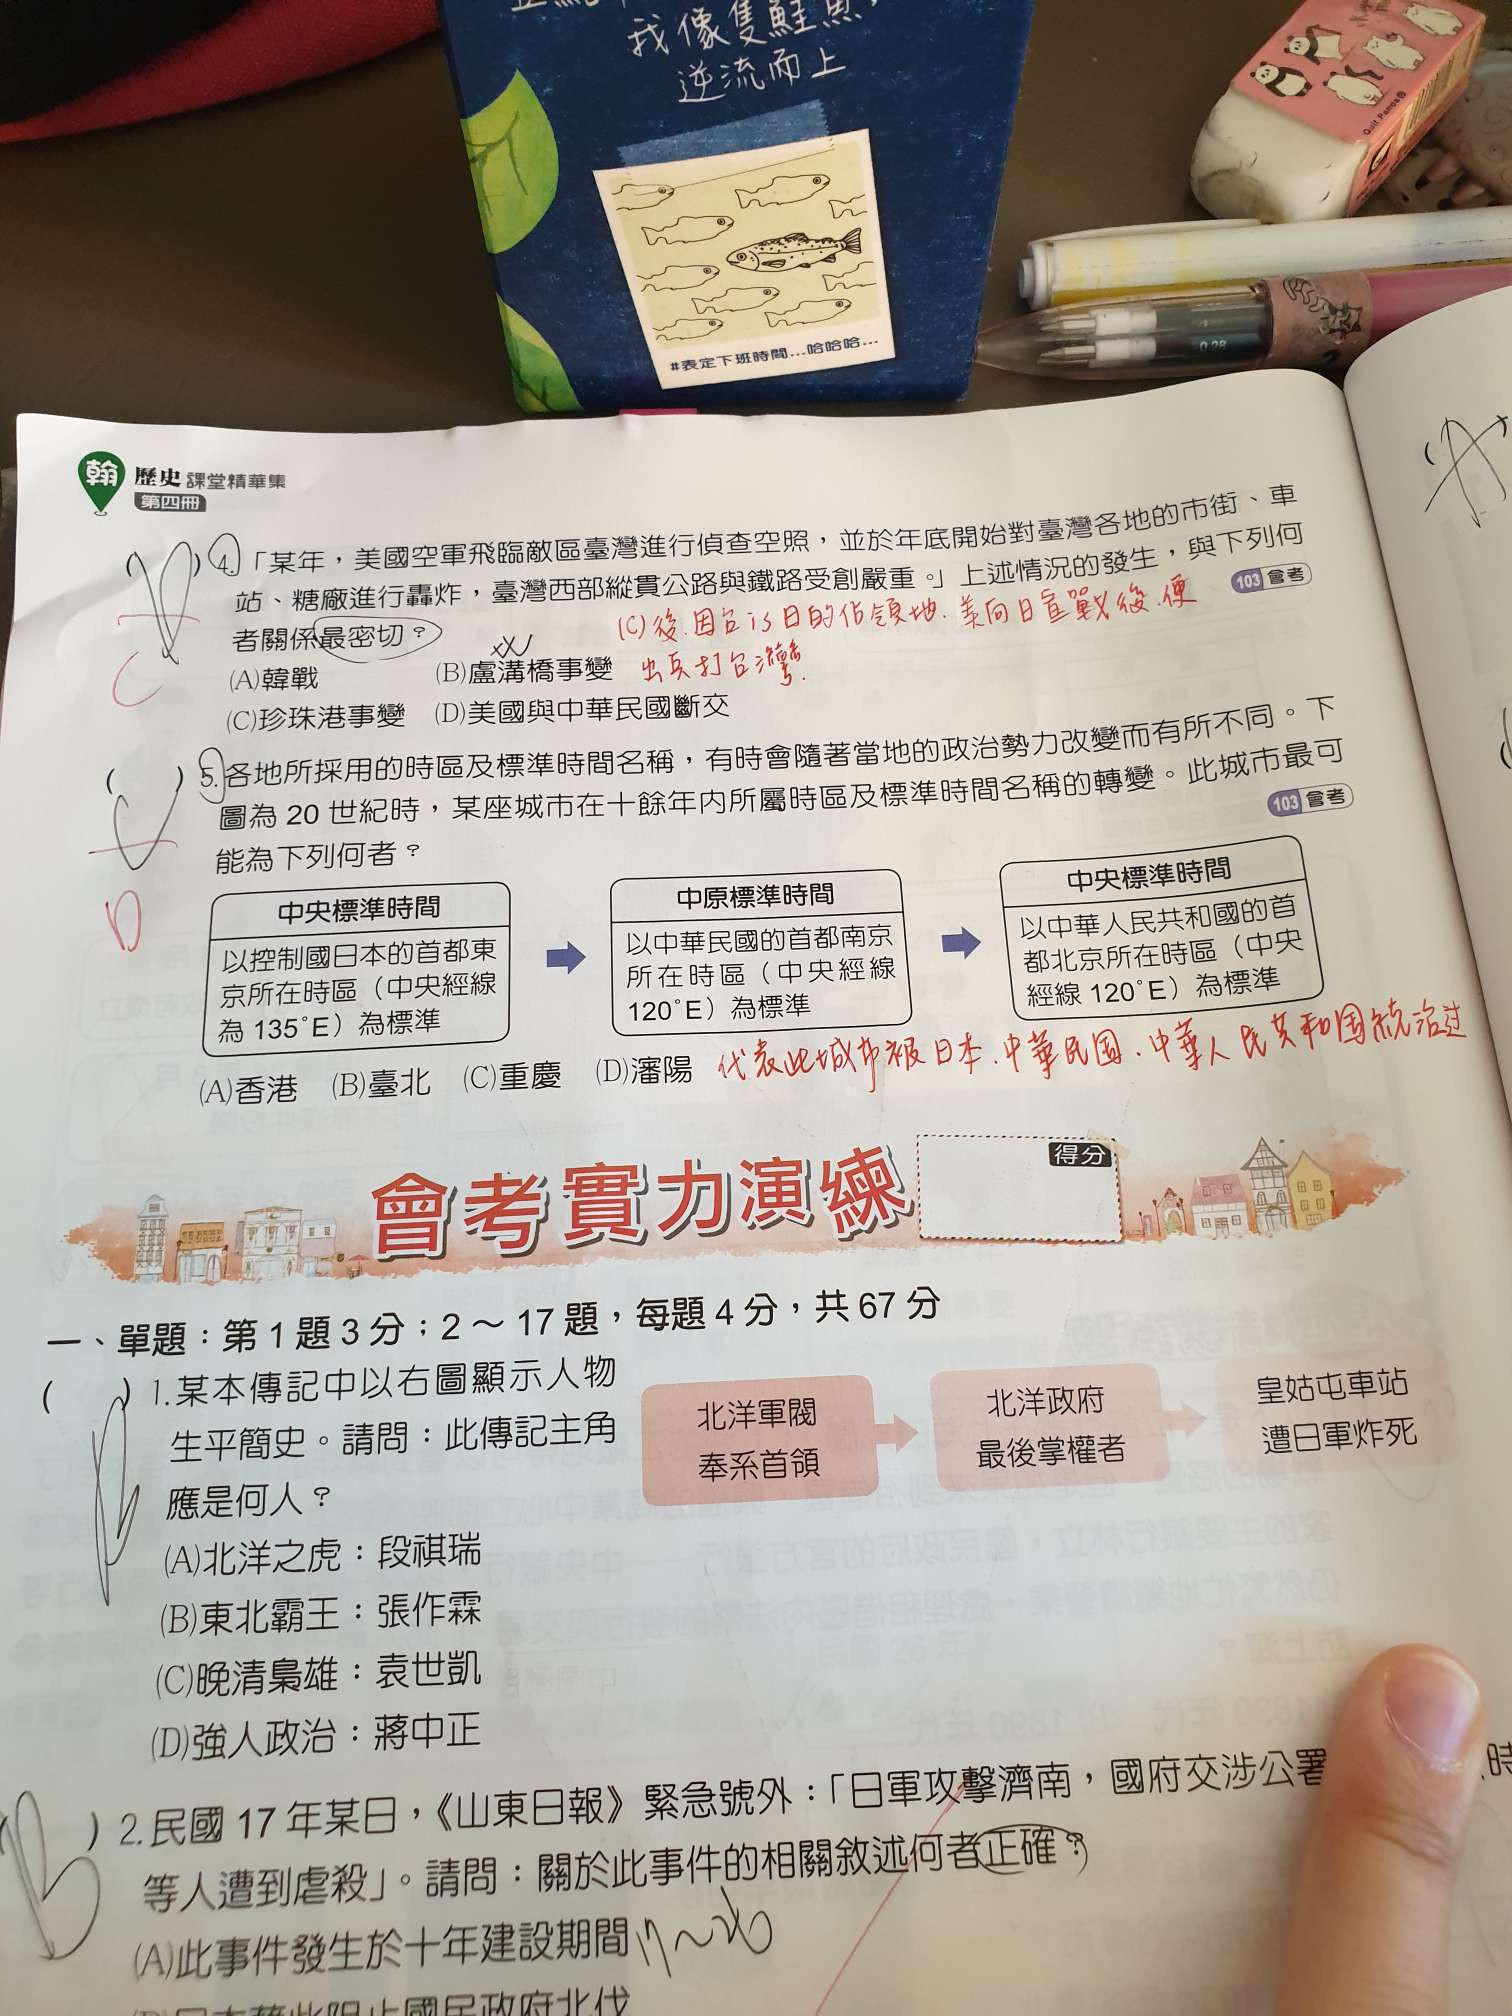 我像隻鮭魚，
逆流而上
#表定下班時間...哈哈哈...
Quit Panda
0.28
翰 歷史 課堂精華集
第四冊
( ) 4.「某年，美國空軍飛臨敵區臺灣進行偵查空照，並於年底開始對臺灣各地的市街、車
站、糖廠進行轟炸，臺灣西部縱貫公路與鐵路受創嚴重。」上述情況的發生，與下列何
者關係最密切？ 103 會考
(C)後.因台is日的佔領地.美向日宣戰後.便
出兵打台灣.
C
(A)韓戰 (B)盧溝橋事變
(C)珍珠港事變 (D)美國與中華民國斷交
( ) 5.各地所採用的時區及標準時間名稱，有時會隨著當地的政治勢力改變而有所不同。下
C
圖為 20 世紀時，某座城市在十餘年內所屬時區及標準時間名稱的轉變。此城市最可
能為下列何者？ 103 會考
D
中央標準時間
以控制國日本的首都東
京所在時區（中央經線
為 135°E）為標準
中原標準時間
以中華民國的首都南京
所在時區（中央經線
120°E）為標準
中央標準時間
以中華人民共和國的首
都北京所在時區（中央
經線 120°E）為標準
(A)香港 (B)臺北 (C)重慶 (D)瀋陽 代表此城市被日本.中華民国.中華人民共和国統治过
會考實力演練 得分
一、單題：第 1 題 3 分；2～17 題，每題 4 分，共 67 分
( ) 1.某本傳記中以右圖顯示人物
生平簡史。請問：此傳記主角
應是何人？
B
北洋軍閥
奉系首領
北洋政府
最後掌權者
皇姑屯車站
遭日軍炸死
(A)北洋之虎：段祺瑞
(B)東北霸王：張作霖
(C)晚清梟雄：袁世凱
(D)強人政治：蔣中正
B ) 2.民國 17 年某日，《山東日報》緊急號外：「日軍攻擊濟南，國府交涉公署 時
等人遭到虐殺」。請問：關於此事件的相關敘述何者正確？
(A)此事件發生於十年建設期間 17～26